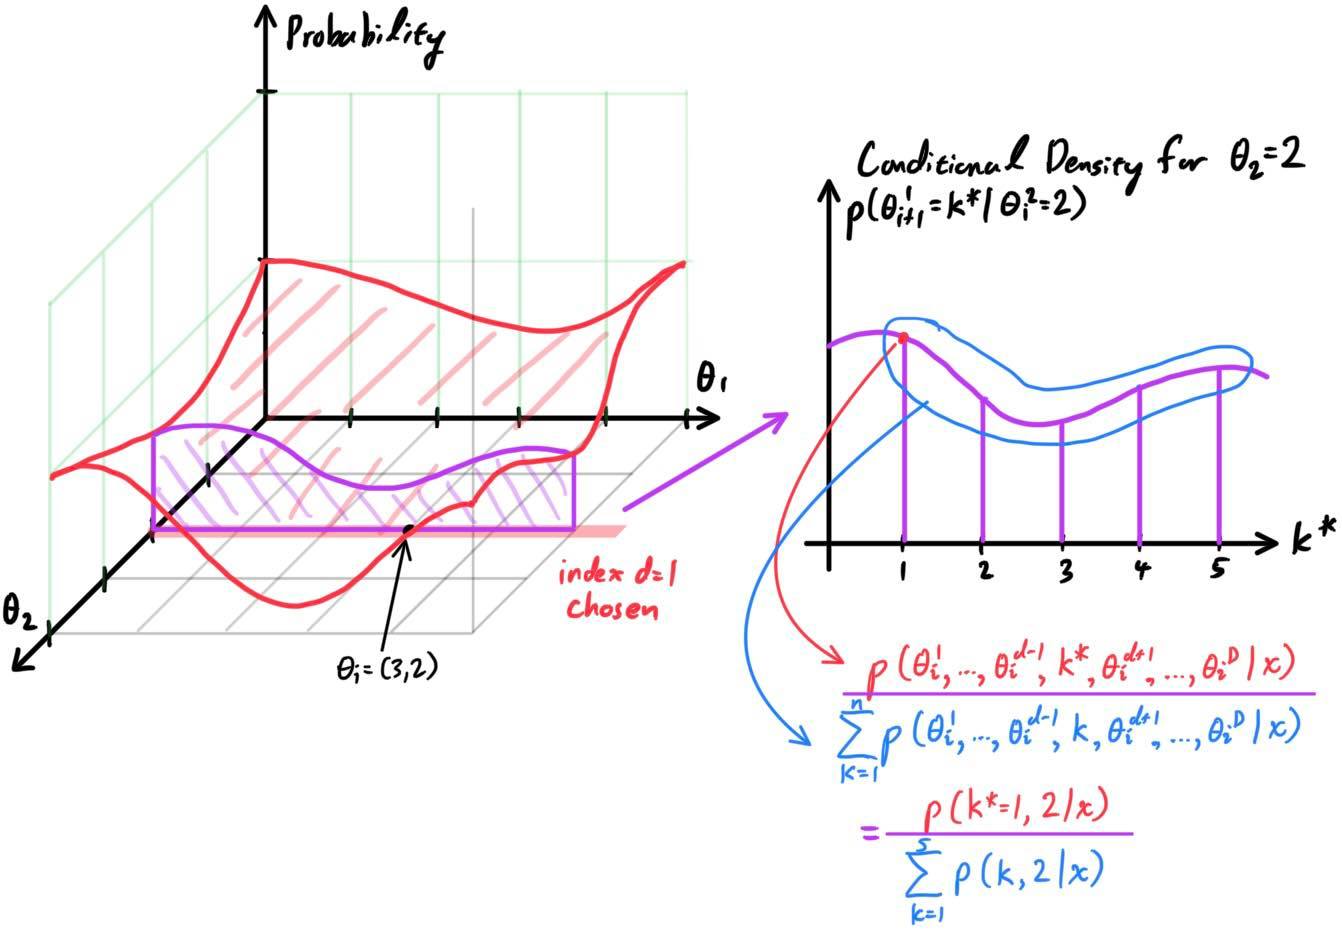 Probability
θ₁
θ₂
index d=1
chosen
θᵢ=(3,2)
Conditional Density for θ₂=2
p(θ¹ᵢ₊₁=k*|θ²ᵢ=2)
k*
1 2 3 4 5
p(θᵢ¹,...,θᵢᵈ⁻¹,k*,θᵢᵈ⁺¹,...,θᵢᴰ|x)
n
∑p(θᵢ¹,...,θᵢᵈ⁻¹,k,θᵢᵈ⁺¹,...,θᵢᴰ|x)
k=1
p(k*=1,2|x)
=
5
∑p(k,2|x)
k=1